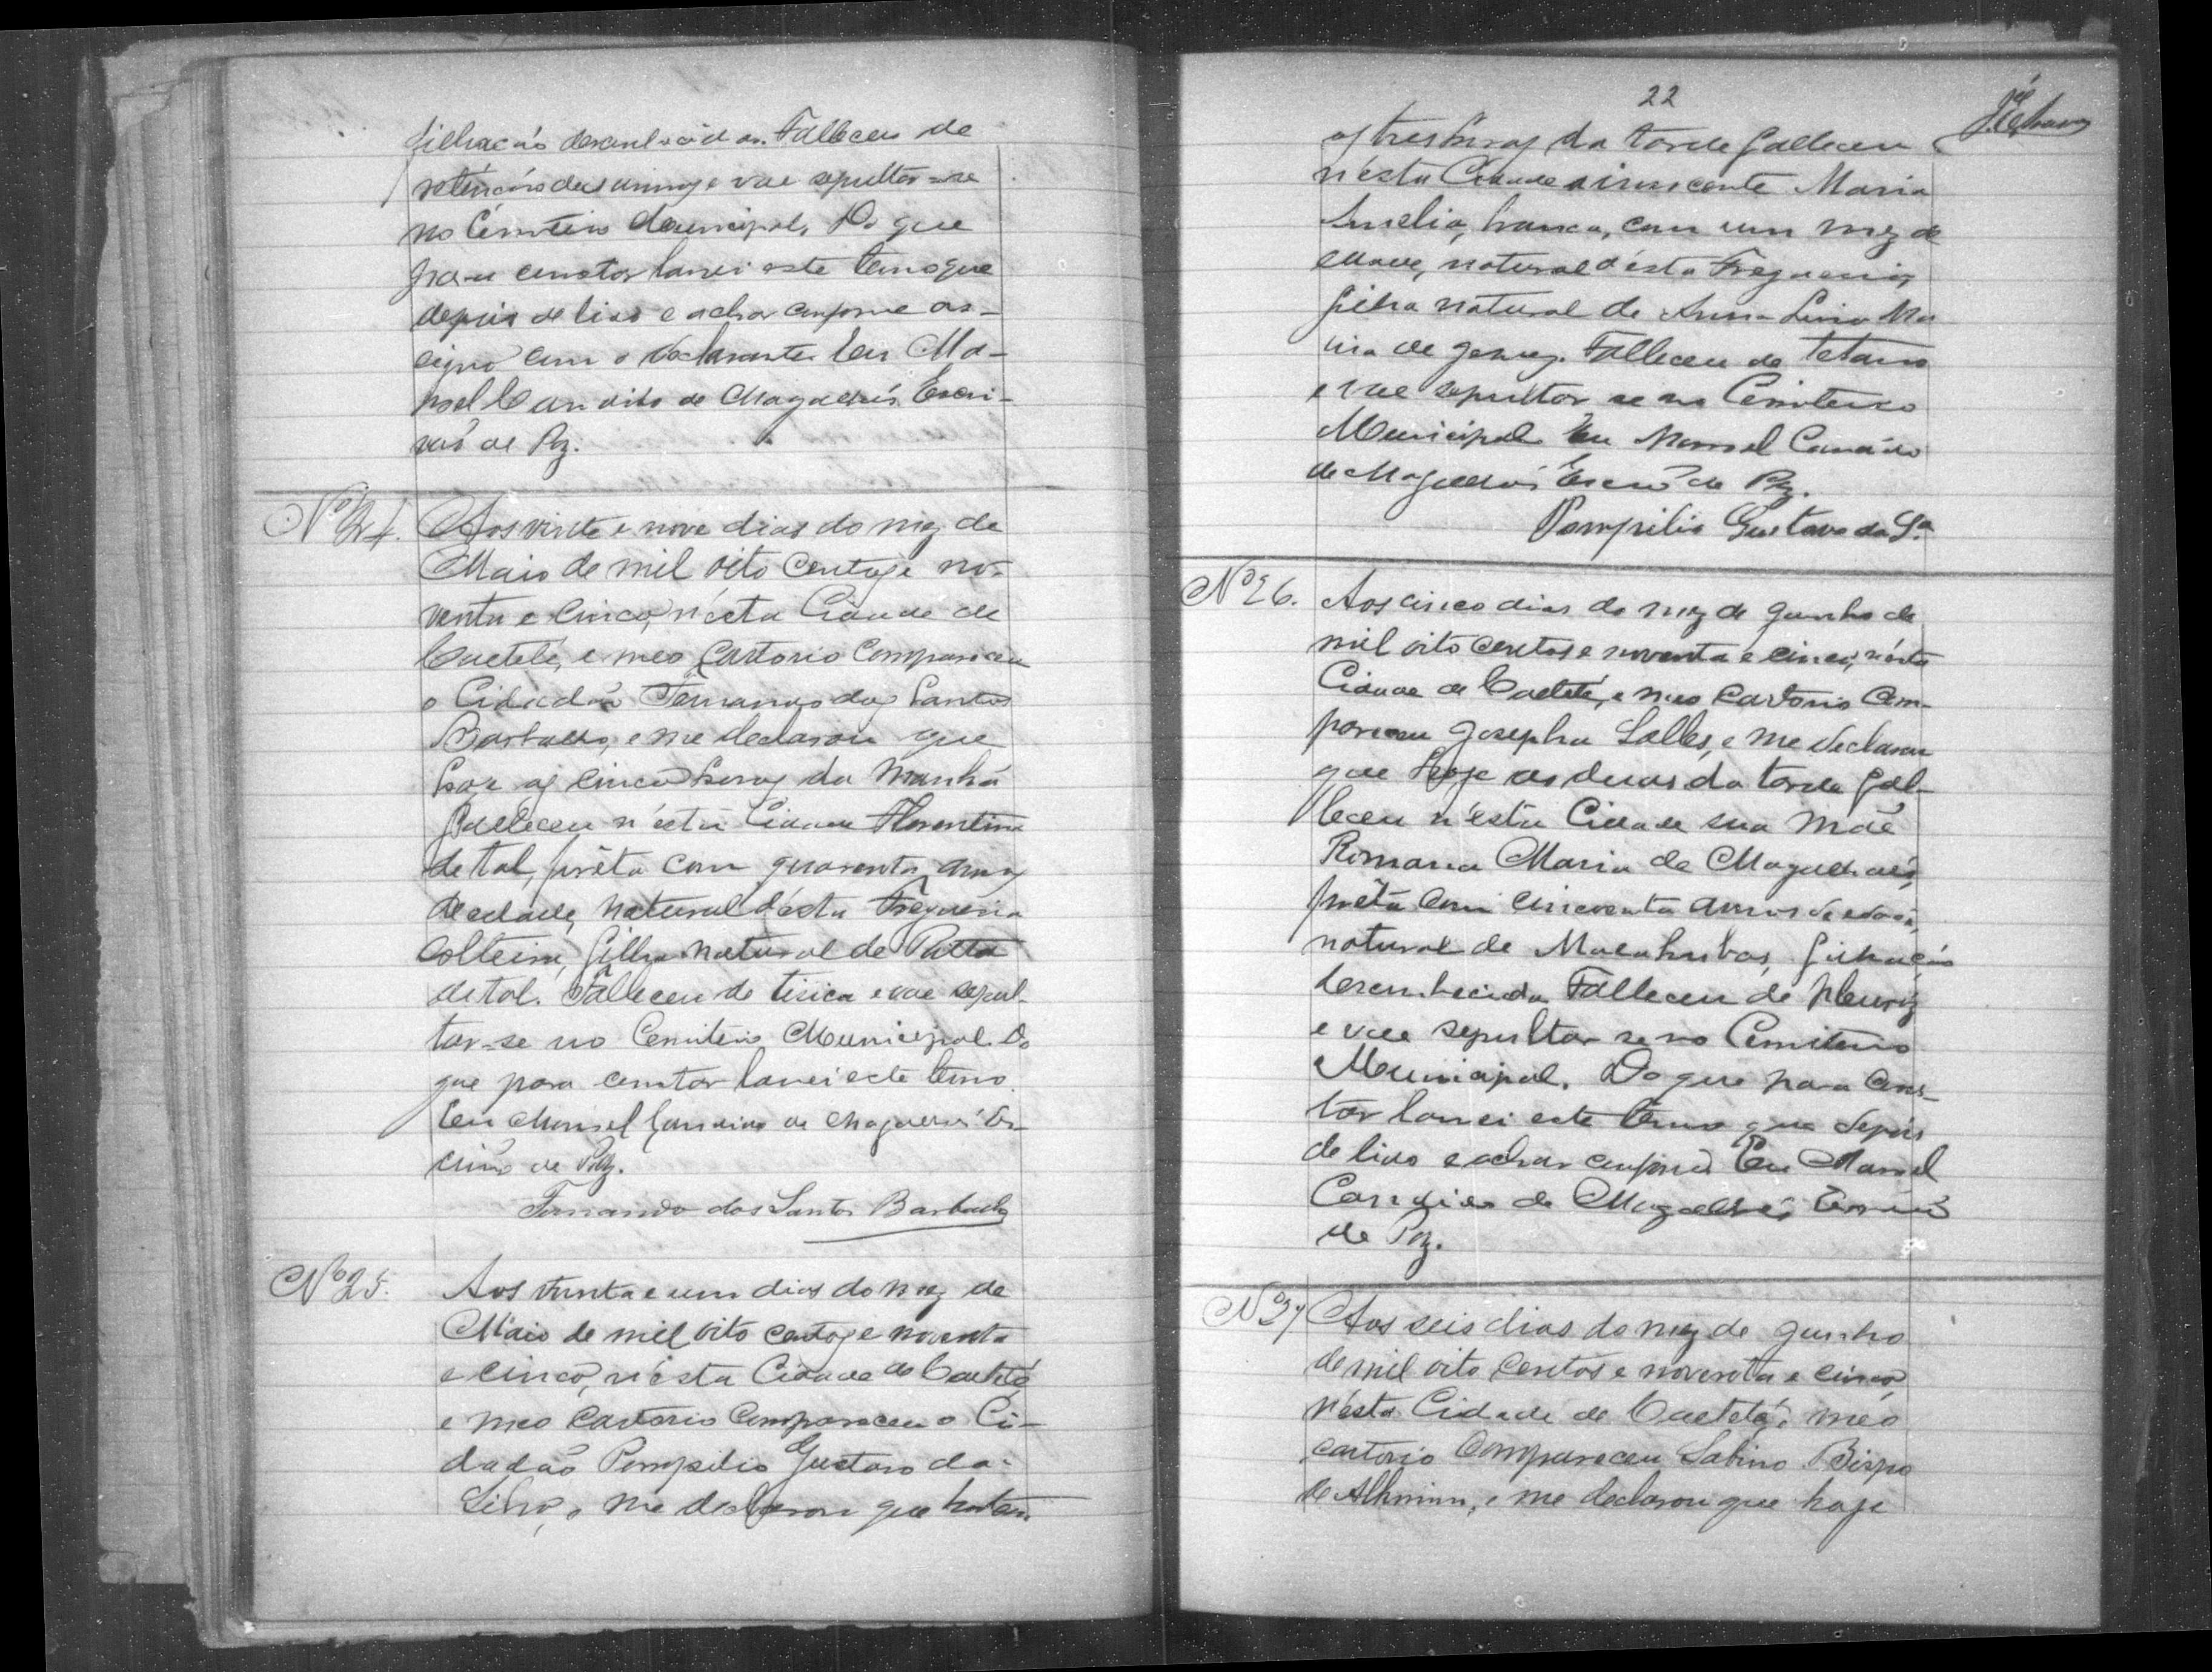 filhação desconhecida. Falleceu de
retenção de urinas e vae sepultar-se
no Cemiterio Municipal. Do que
para constar lancei este termo que
depois de lido e achar conforme as-
signo com o declarante. Eu Ma-
noel Candido de Magalhães Escri-
vão de Paz.
Nº 24. Aos vinte e nove dias do mez de
Maio de mil oito centos e no-
venta e cinco, n'esta Cidade de
Caeteté, e meo Cartorio Compareceu
o Cidadão Fernando dos Santos
Barbalho, e me declarou que
hoje as cinco horas da manhã
falleceu n'esta Cidade Florentina
de tal, prêta com quarenta annos
de edade, natural d'esta Freguesia
Solteira, filha natural de
de tal. Falleceu de tisica e vae sepul-
tar-se no Cemiterio Municipal. Do
que para constar lancei este termo.
Eu Manoel Candido de Magalhães Es-
crivão de Paz.
Fernando dos Santos Barbalho
Nº 25. Aos trinta e um dias do mez de
Maio de mil oito centos e noventa
e cinco, n'esta Cidade de Caeteté
e meo Cartorio Compareceu o Ci-
dadão Pompilio Gustavo da
Silva, e me declarou que hontem
22
as tres horas da tarde falleceu
n'esta Cidade a innocente Maria
Amelia, branca, com um mez de
edade, natural d'esta Freguesia,
filha natural de Anna Ma
ria de Jesus. Falleceu de Tetano
e vae sepultar se no Cemiterio
Municipal. Eu Manoel Candido
de Magalhães Escrvão de Paz.
Pompilio Gustavo da Sª
Nº 26. Aos cinco dias do mez de Junho de
mil oito centos e noventa e cinco, n'esta
Cidade de Caeteté, e meo Cartorio Com-
pareceu Josepha Salles, e me declarou
que hoje as duas da tarde fal-
leceu n'esta Cidade sua mãe
Romana Maria de Magalhães,
prêta com cincoenta annos de edade,
natural de Macahubas, filhação
desconhecida. Falleceu de pleuriz
e vae sepultar se no Cemiterio
Municipal. Do que para Cons-
tar lancei este termo que depois
de lido e achar conforme Eu Manoel
Candido de Magalhães Escrivão
de Paz.
Nº 27 Aos seis dias do mez de Junho
de mil oito centos e noventa e cinco
n'esta Cidade de Caeteté, e meo
cartorio Compareceu Sabino Bispo
de, e me declarou que hoje